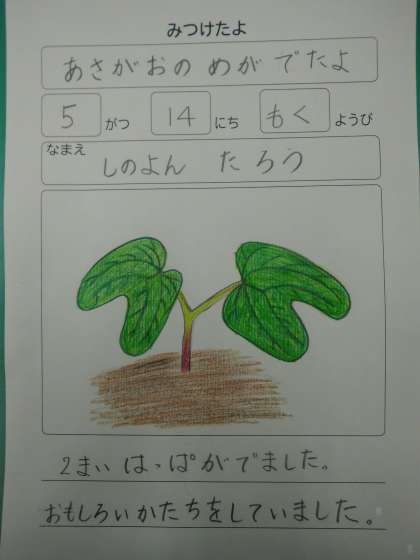 みつけたよ
あさがおの めが でたよ
5 がつ 14 にち もく ようび
なまえ
しのよん たろう
2まい はっぱがでました。
おもしろいかたちをしていました。